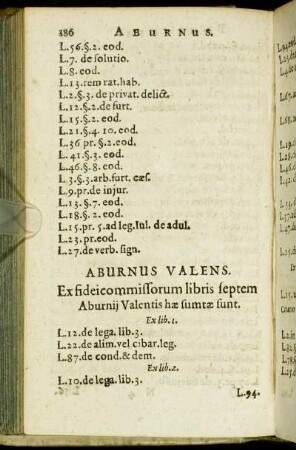 186 ABURNUS.
L.56.§.2. eod.
L.7. de solutio.
L.8. eod.
L.13. rem rat. hab.
L.2.§.3. de privat. delict.
L.12.§.2. de furt.
L.15.§.2. eod.
L.21.§.4. 10. eod.
L.36 pr. §.2. eod.
L.41.§.3. eod.
L.46.§.8. eod.
L.3.§.3. arb. furt. cæs.
L.9. pr. de injur.
L.13.§.7. eod.
L.18.§.2. eod.
L.15. pr. 5. ad leg. Iul. de adul.
L.23. pr. eod.
L.27. de verb. sign.
ABURNUS VALENS.
Ex fideicommissorum libris septem
Aburnij Valentis hæ sumtæ sunt.
Ex lib. 1.
L.12. de lega. lib. 3.
L.22. de alim. vel cibar. leg.
L.87. de cond. & dem.
Ex lib. 2.
L.10. de lega. lib. 3.
L.94.